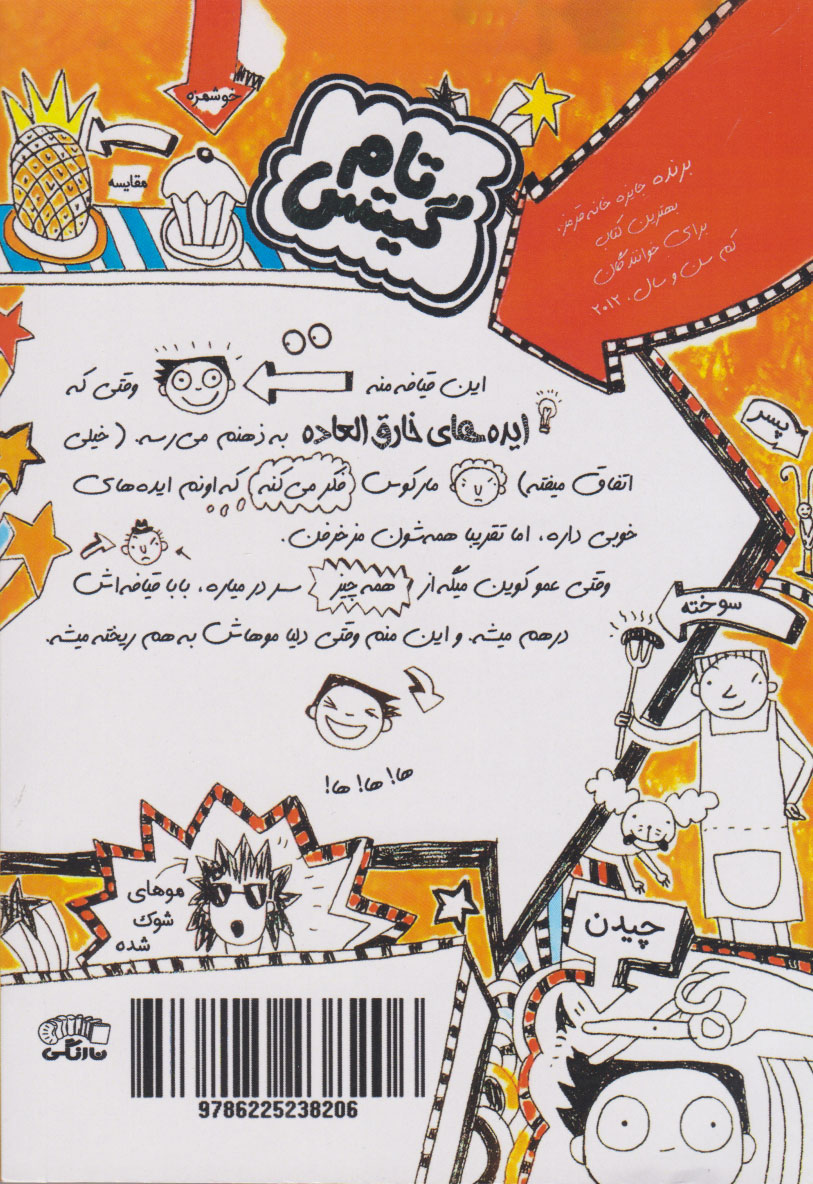 خوشمزه
مقایسه
تام
گیتس
برنده جایزه خانه قرمز.
بهترین کتاب
برای خوانندگان
کم سن و سال. ۲۰۱۲
این قیافه منه وقتی که
ایده‌های خارق العاده به ذهنم می‌رسه. (خیلی
اتفاق میفته) مارکوس فکر می‌کنه که اونم ایده‌های
خوبی داره، اما تقریبا همه‌شون مزخرفن.
وقتی عمو کوین میگه از همه چیز سر در میاره، بابا قیافه‌اش
درهم میشه. و این منم وقتی دلیا موهاش به هم ریخته میشه.
ها! ها! ها!
پسر
سوخته
موهای
شوک
شده
چیدن
نارنگی
9786225238206